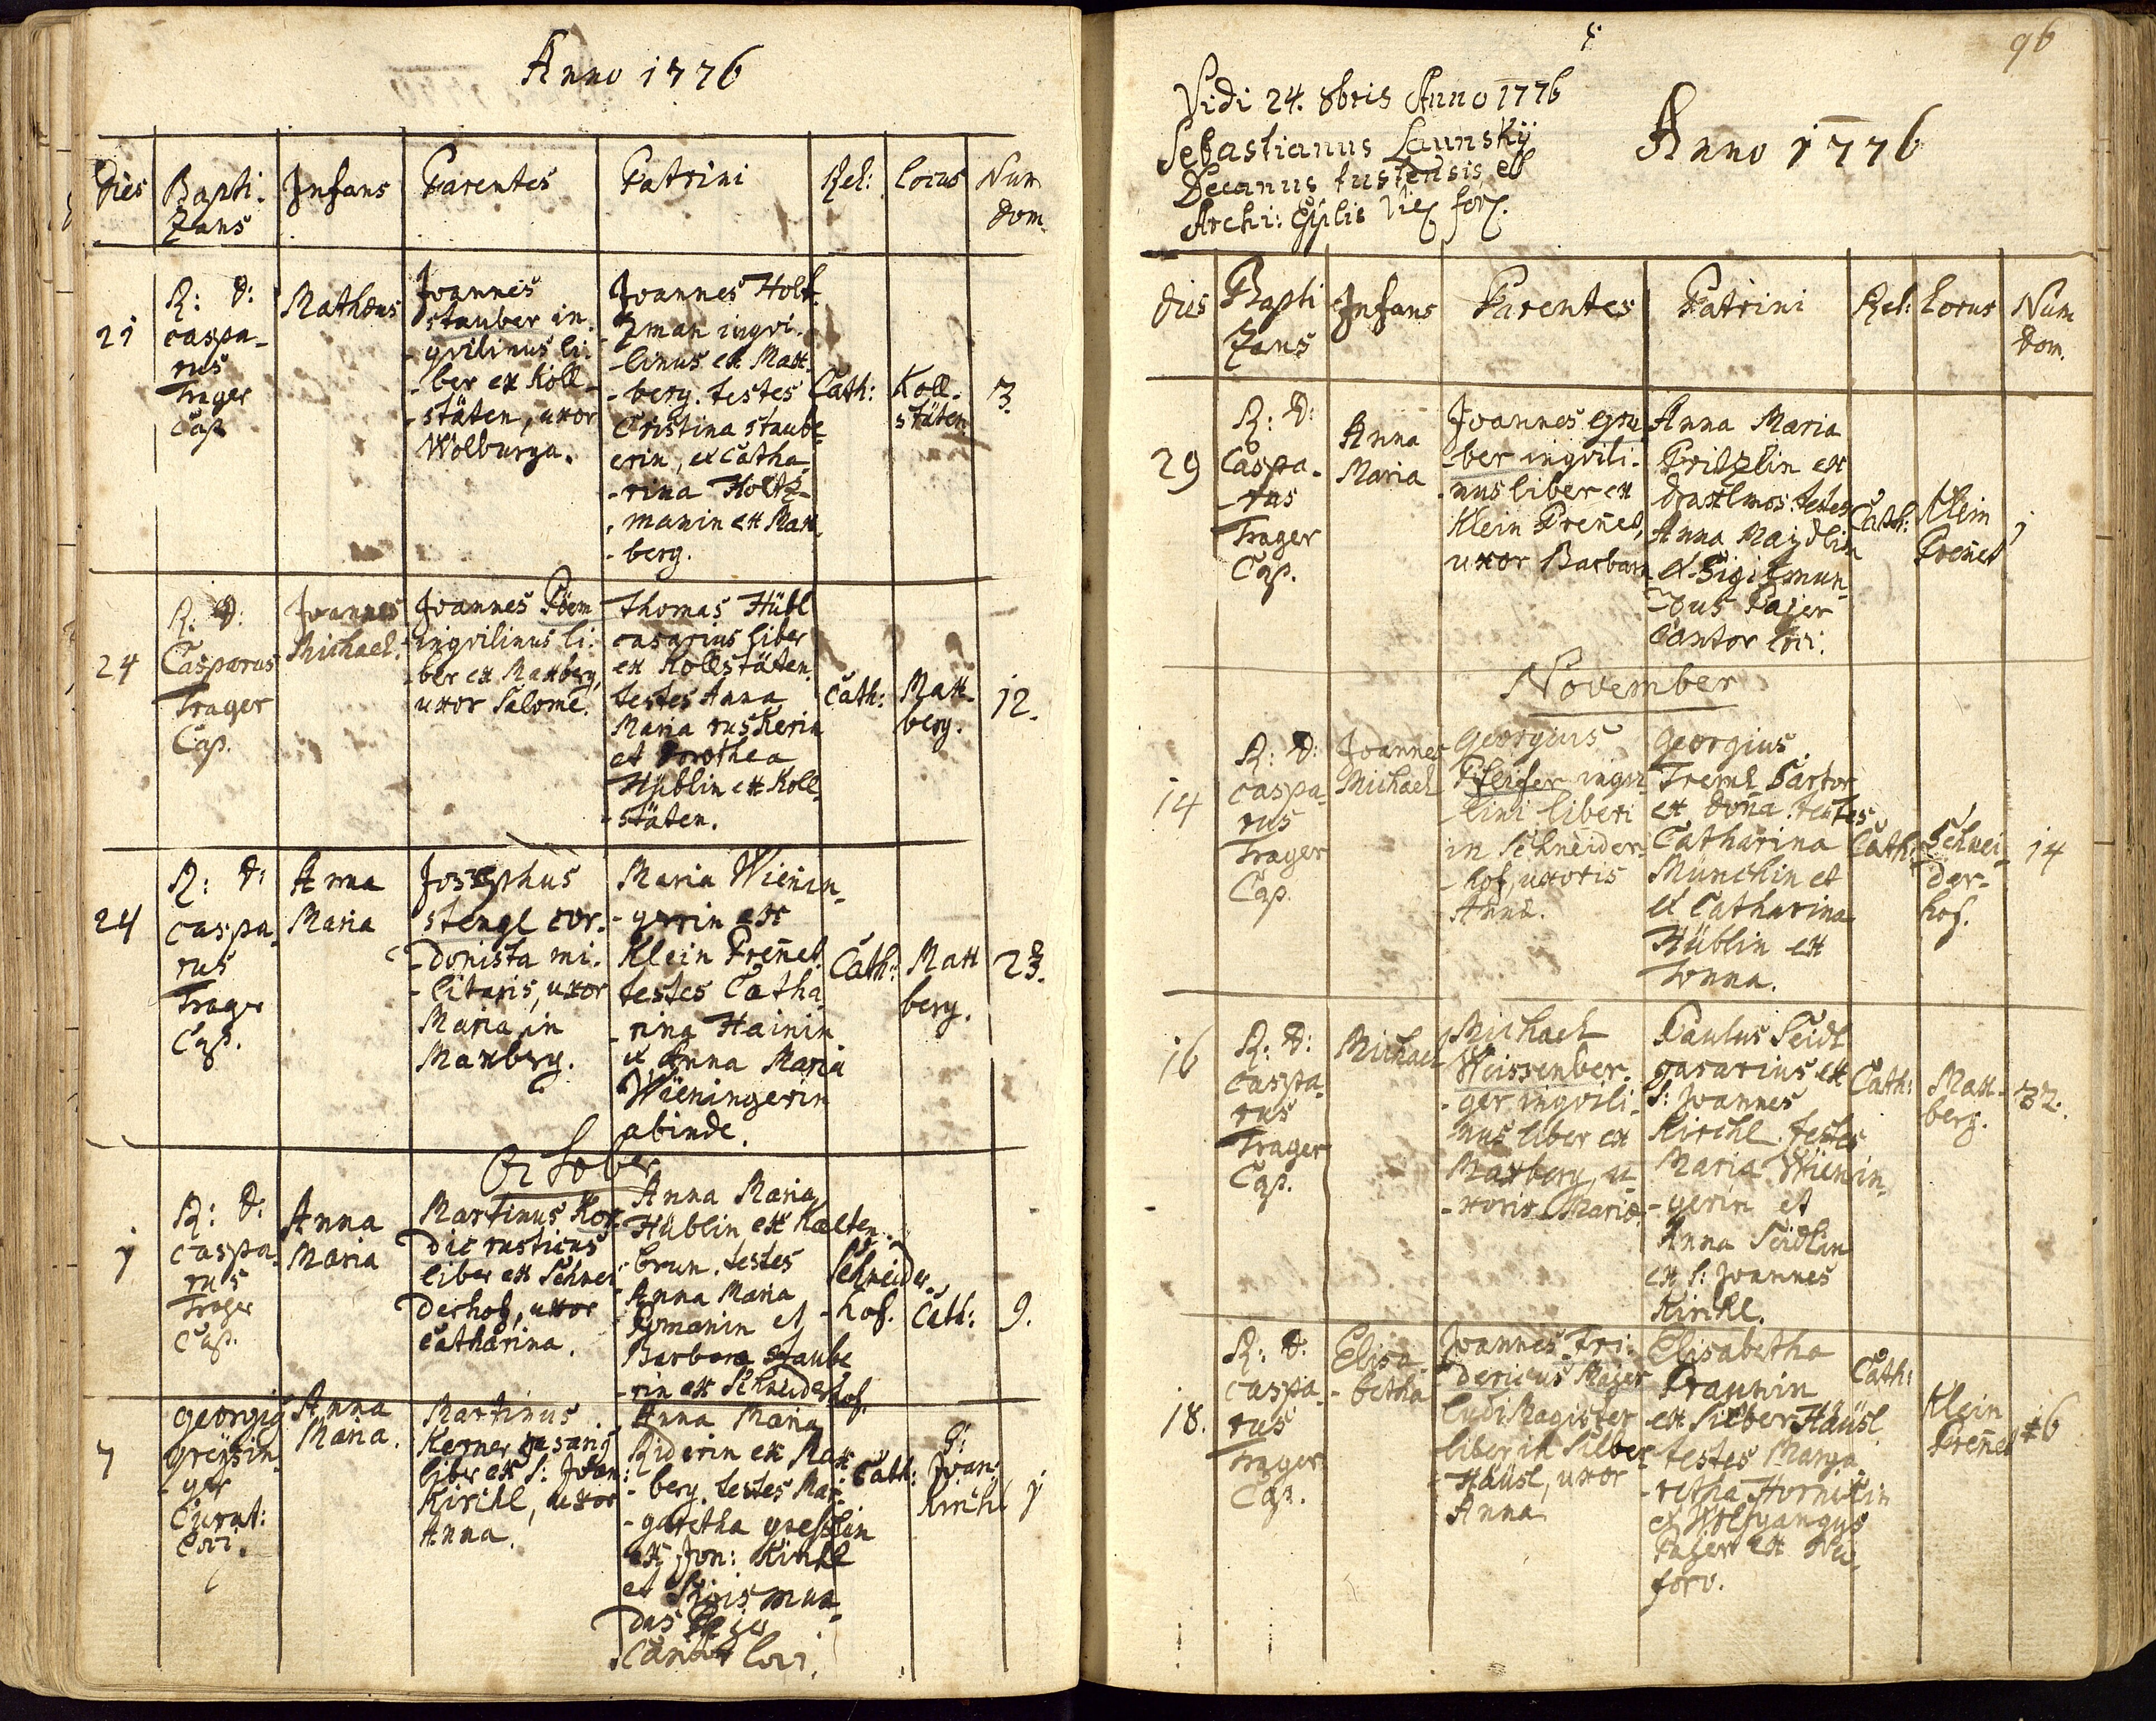 Anno 1776
Dies Bapti- Infans Parentes Patrini Rel: Locus Num
zans dom.
21
R: D:
caspa-
rus
Trager
Cap.
Mathæus
Joannes
stauber in-
-qvilinus li-
-ber ex Koll-
-stäten, uxor
Wolburga.
Joannes Holt-
zman inqvi-
-linus ex Max-
-berg. testes
Cristina staube-
erin, et Catha-
-rina Holtz-
-manin ex Max-
-berg.
Cath:
Koll-
stäten
3.
24
R: D:
Casparus
Trager
Cap.
Joannes
Michael.
Joannes Pöem
inqvilinus li-
-ber ex Maxberg,
uxor Salome.
Thomas Hübl
casarius liber
ex Kollstäten.
testes Anna
Maria ruskerin
et Dorothea
Hüblin ex Koll-
-stäten.
Cath:
Max-
berg.
12.
24
R: D:
caspa-
rus
Trager
Cap.
Anna
Maria
Josephus
stengl cor-
-donista mi-
-litaris, uxor
Maria, in
Maxberg.
Maria Wienin-
-gerin ex
Klein Preñet.
testes Catha-
-rina Hainin
et Anna Maria
Wieningerin
abinde.
Cath:
Max-
berg.
23.
October
1
R: D:
caspa-
rus
Trager
Cap.
Anna
Maria
Martinus Kor-
dic rusticus
liber ex Schnei-
derhof, uxor
Catharina.
Anna Maria
Hüblin ex Kalten-
-brun. testes
Anna Maria
et
Barbara staube-
-rin ex Schneiderhof.
Schneider-
-hof.
Cath:
9.
7
Georgig
Greÿsin-
-ger
Curat:
loci.
Anna
Maria.
Martinus
Kerner casarig
liber ex S: Joan:
Kirchl, uxor
Anna.
Anna Maria
Riderin ex Max-
-berg. testes Mar-
-garetha
ex Jon: Kirchl
et Sigismun-
dus Pajer
Cantor loci.
Cath:
S:
Joan:
Kirchl
1
96
Vidi 24. 8bris Anno 1776
Sebastianus Launskÿ
Decanus tustensis et
Archi: Eplis Vic for.
Anno 1776
dies Bapti Infans Parentes Patrini Rel: Locus Num
zans dom.
29
R: D:
Caspa-
-rus
Trager
Cap.
Anna
Maria
Joannes gru-
-ber inqvili-
-nus liber ex
Klein Preñet,
uxor Barbara
Anna Maria
Pritzlin ex
testes
Anna Maÿdlin
et Sigismun-
-dus Pajer
Cantor loci.
Cath:
Klein
Preñet
1
November
14
R: D:
caspa-
rus
Trager
Cap.
Joannes
Michael
Georgius
Pfeifer inqvi-
lini liberi
in Schneider-
-hof, uxoris
Annæ.
Georgius
Treml Sartor
ex Doña. testes
Catharina
Münchin et
et Catharina
Hüblin ex
Tonna.
Cath:
Schnei-
der-
hof.
14
16
R: D:
caspa-
rus
Trager
Cap.
Michael
Michael
Weissenber-
-ger inqvili-
-nus liber ex
Maxberg, u-
-xoris Mariæ.
Paulus Seidl
casarius ex
S: Joannes
Kirchl. testes
Maria Wienin-
-gerin et
Anna Seidlin
ex S: Joannes
Kirchl.
Cath:
Max-
berg.
32.
18.
R: D:
caspa-
rus
Trager
Cap.
Elisa-
-betha
Joannes Fri-
dericus Majer
ludi Magister
liber in Silber-
-Haüsl, uxor
Anna
Elisabetha
Praunin
ex Silber Haüsl
testes Marga-
-retha Hornikin
et Wolfgangus
Pajer ex Neu-
foro.
Cath:
Klein
Preñet
6